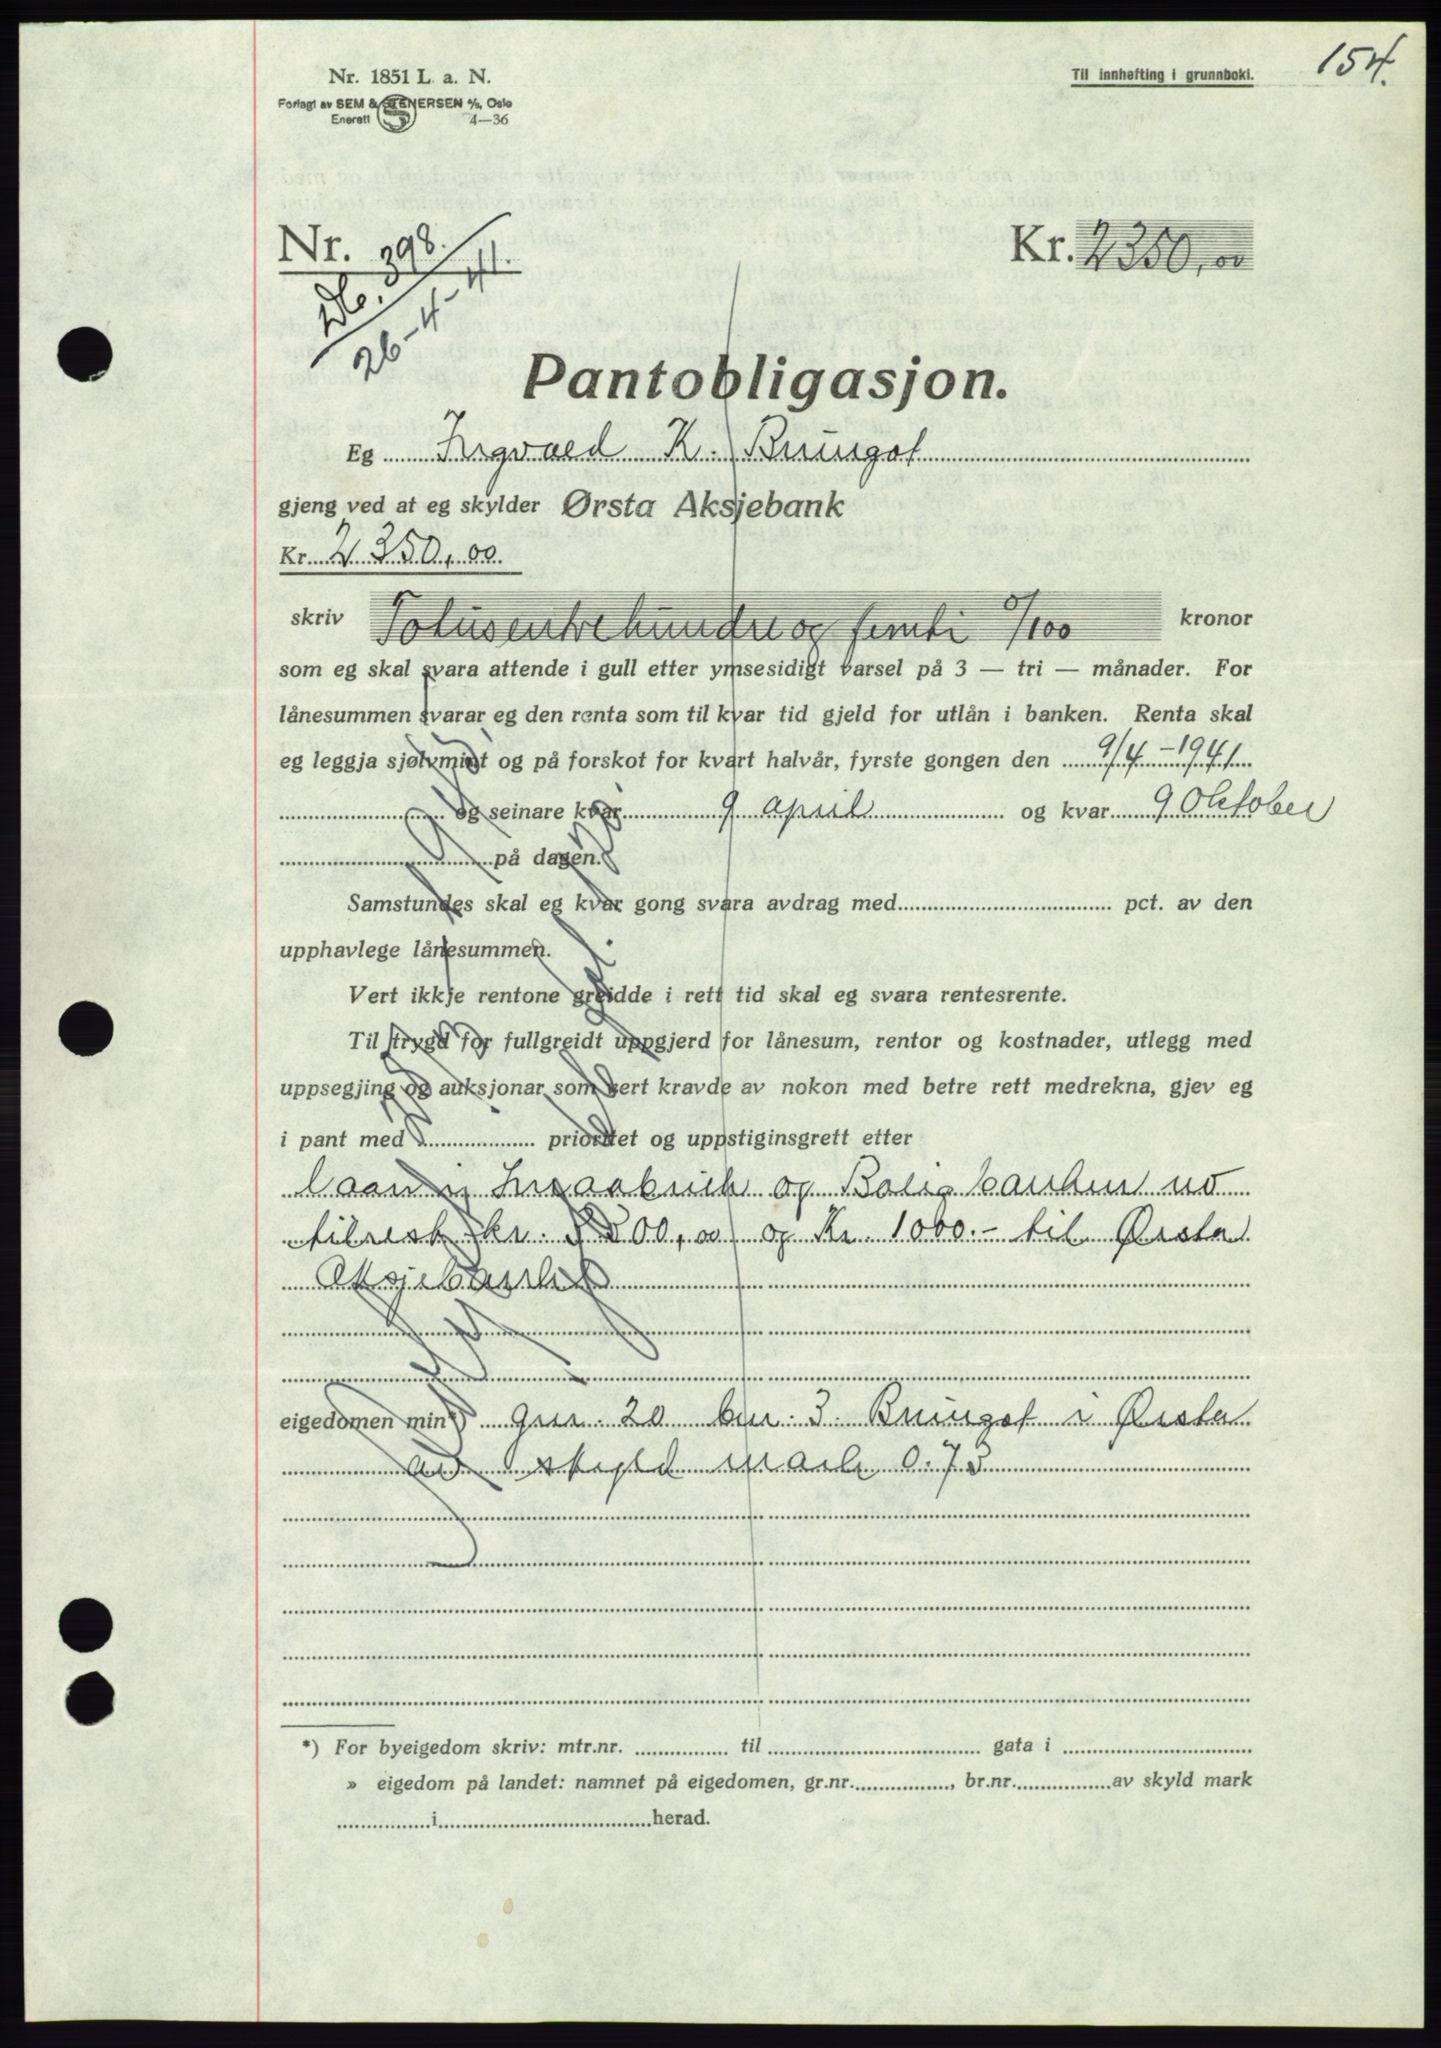 154.
Nr. 1851 L. a. N.
Til innhefting i grunnboki.
Forlagt av SEM & STENERSEN A/S, Oslo
Enerett 4—36
Nr. Kr. 2350,00
Db. 398.
26-4-41.
Pantobligasjon.
Eg Ingvald K. Brungot
gjeng ved at eg skylder Ørsta Aksjebank
Kr. 2350,00.
skriv Totusentrehundre og femti 0/100 kronor
som eg skal svara attende i gull etter ymsesidigt varsel på 3 — tri — månader. For
lånesummen svarar eg den renta som til kvar tid gjeld for utlån i banken. Renta skal
eg leggja sjølvmint og på forskot for kvart halvår, fyrste gongen den 9/4-1941
og seinare kvar 9 april og kvar 9 Oktober
på dagen.
Samstundes skal eg kvar gong svara avdrag med pct. av den
upphavlege lånesummen.
Vert ikkje rentone greidde i rett tid skal eg svara rentesrente.
Til trygd for fullgreidt uppgjerd for lånesum, rentor og kostnader, utlegg med
uppsegjing og auksjonar som vert kravde av nokon med betre rett medrekna, gjev eg
i pant med prioritet og uppstiginsgrett etter
laan i Smaabruk og Boligbanken no
tilrest kr. 5500,00 og Kr. 1000.- til Ørsta
Aksjebank
eigedomen min*) gnr. 20 bnr. 3. Brungot i Ørsta
av skyld mark 0.75
*) For byeigedom skriv: mtr.nr. til gata i
» eigedom på landet: namnet på eigedomen, gr.nr. , br.nr. av skyld mark
i herad.